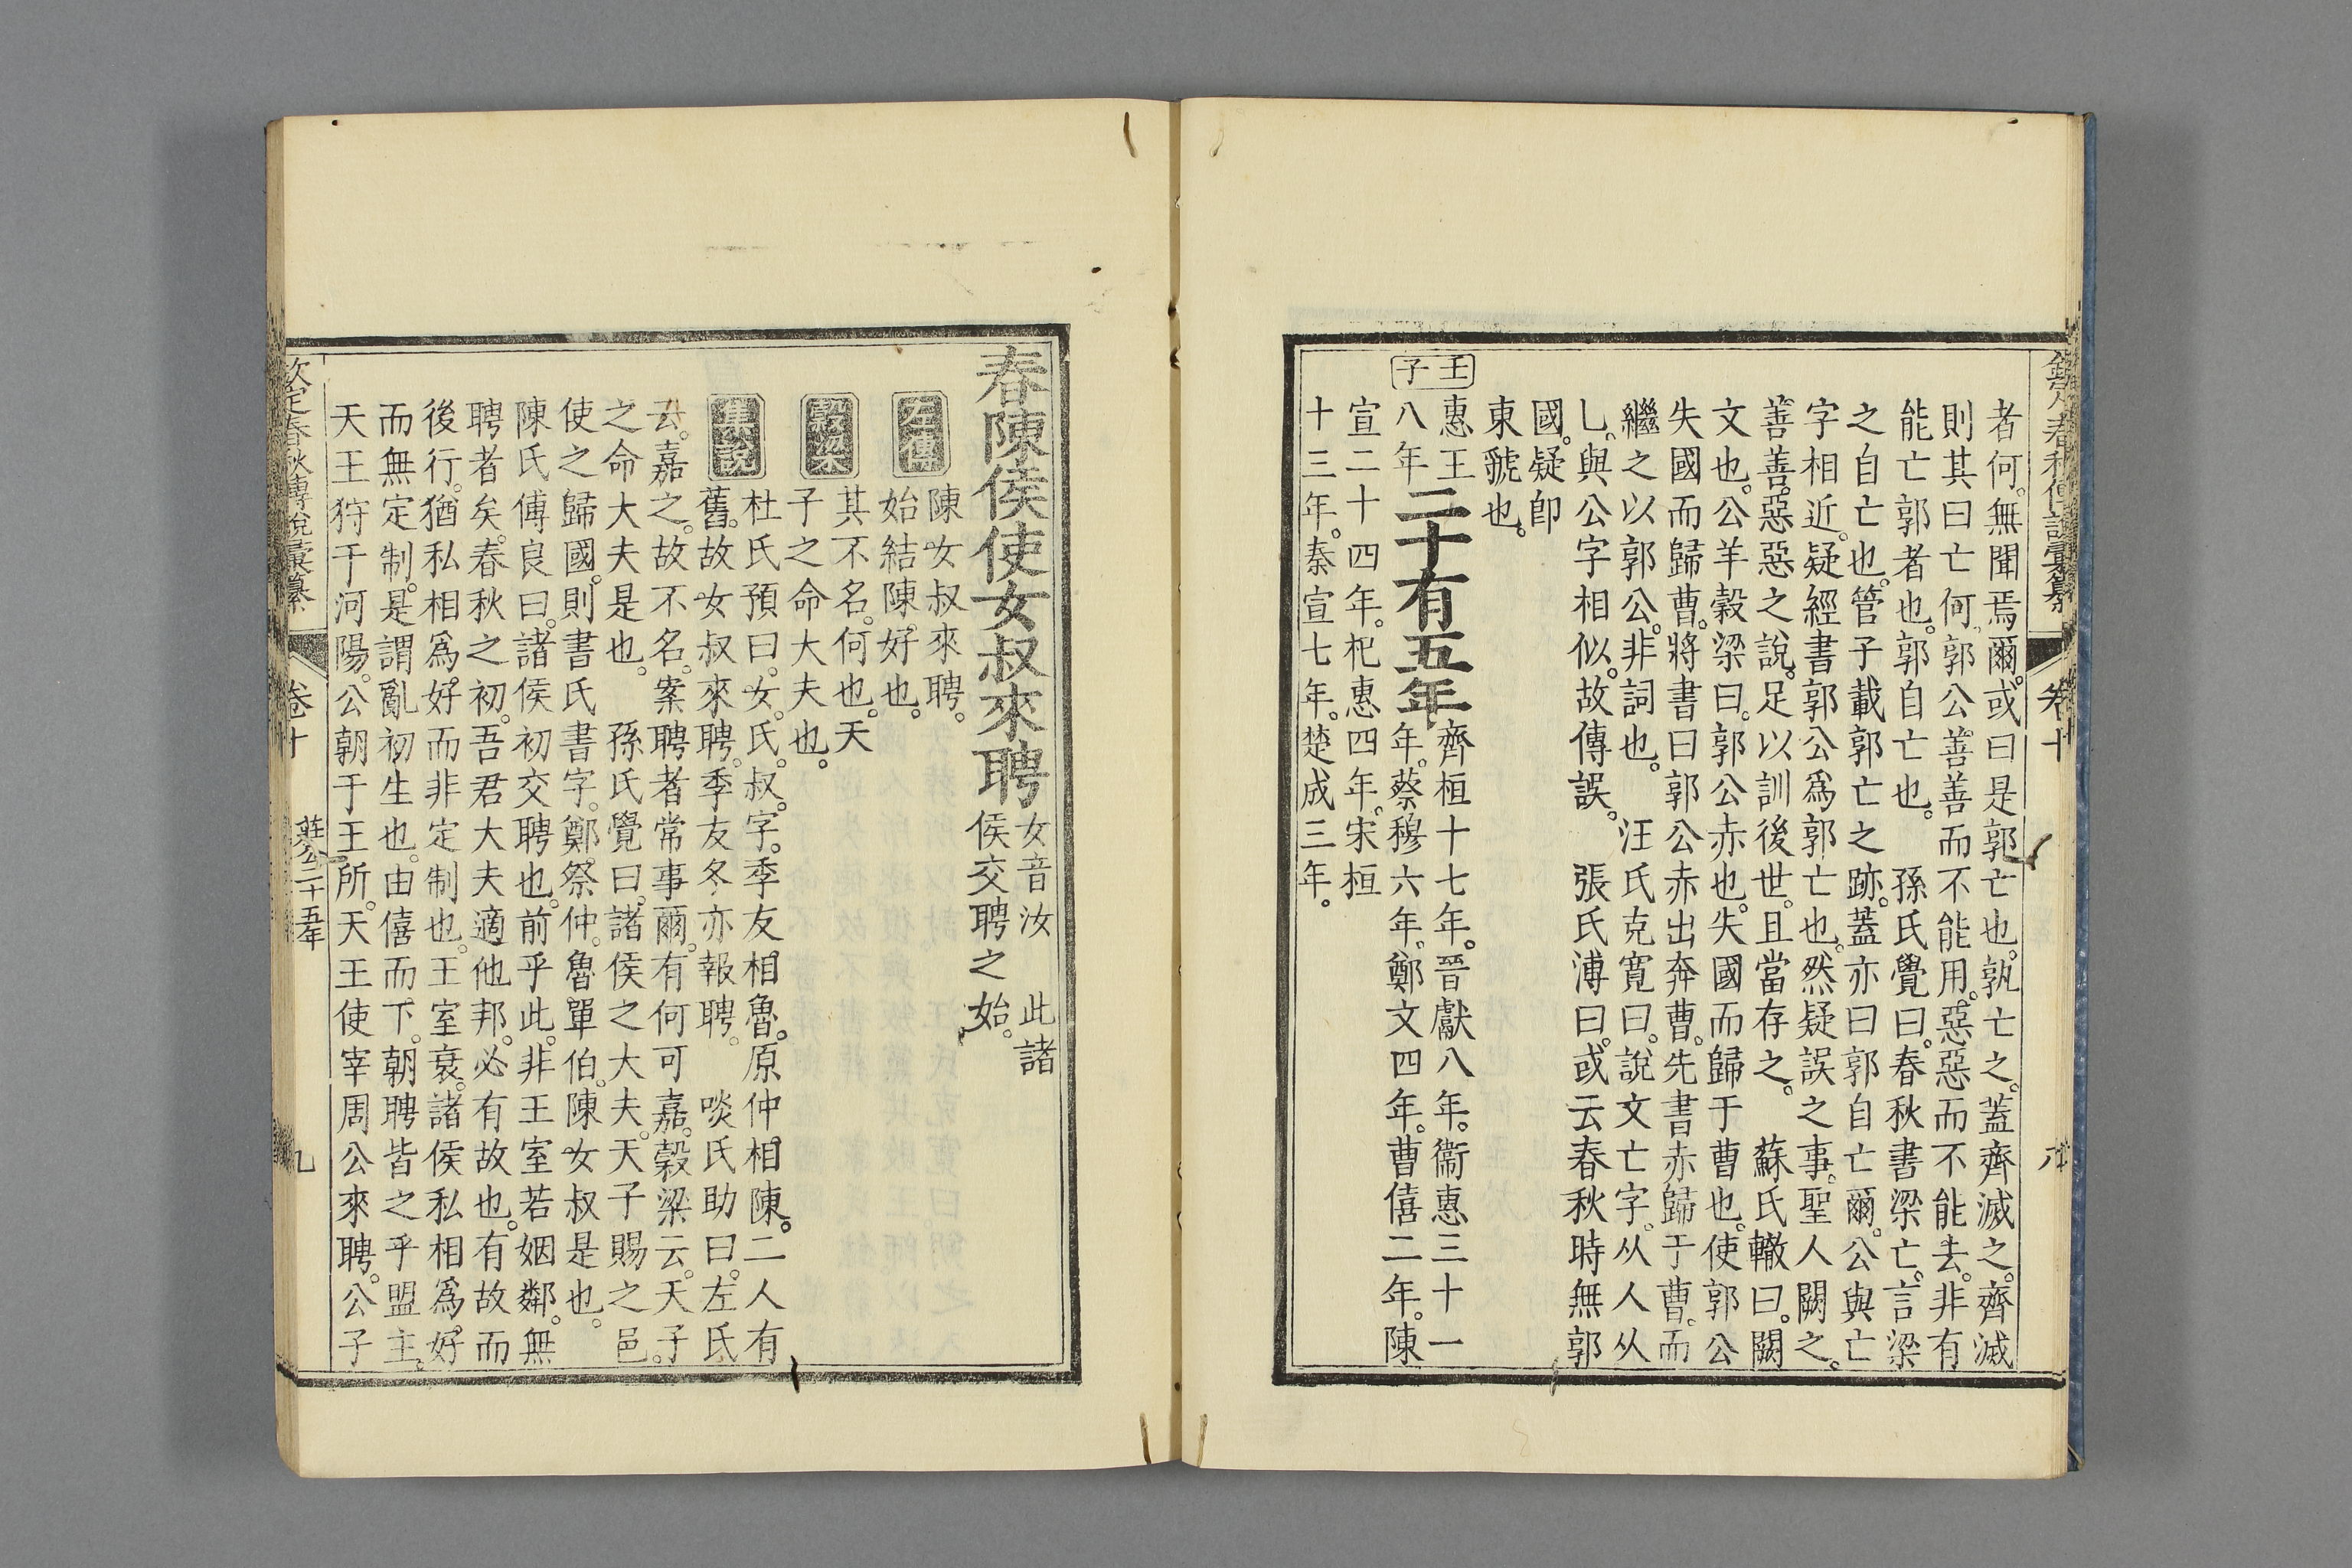 者何。無聞焉爾。或曰是郭亡也。孰亡之。蓋齊滅之。齊滅
則其曰亡何。郭公善善而不能用。惡惡而不能去。非有
能亡郭者也。郭自亡也。　孫氏覺曰。春秋書梁亡。言梁
之自亡也。管子載郭亡之跡。蓋亦曰郭自亡爾。公與亡
字相近。疑經書郭公爲郭亡也。然疑誤之事。聖人闕之。
善善。惡惡之說。足以訓後世。且當存之。　蘇氏轍曰。闕
文也。公羊穀梁曰。郭公赤也。失國而歸于曹也。使郭公
失國而歸曹。將書曰郭公赤出奔曹。先書赤歸于曹。而
繼之以郭公。非詞也。　汪氏克寬曰。說文亡字。从人从
乚。與公字相似。故傳誤。　張氏溥曰。或云春秋時無郭
國。疑卽
東虢也。
壬子
惠王
八年
二十有五年
齊桓十七年。晉獻八年。衞惠三十一
年。蔡穆六年。鄭文四年。曹僖二年。陳
宣二十四年。杞惠四年。宋桓
十三年。秦宣七年。楚成三年。
春陳侯使女叔來聘
女音汝　此諸
侯交聘之始。
左傳
陳女叔來聘。
始結陳。好也。
穀梁
其不名。何也。天
子之命大夫也。
集說
杜氏預曰。女。氏。叔。字。季友相魯。原仲相陳。二人有
舊。故女叔來聘。季友冬亦報聘。　啖氏助曰。左氏
云。嘉之。故不名。案聘者常事爾。有何可嘉。穀梁云。天子
之命大夫是也。　孫氏覺曰。諸侯之大夫。天子賜之邑。
使之歸國。則書氏書字。鄭祭仲。魯單伯。陳女叔是也。
陳氏傅良曰。諸侯初交聘也。前乎此。非王室若姻鄰。無
聘者矣。春秋之初。吾君大夫適他邦。必有故也。有故而
後行。猶私相爲好。而非定制也。王室衰。諸侯私相爲好。
而無定制。是謂亂初生也。由僖而下。朝聘皆之乎盟主。
天王狩于河陽。公朝于王所。天王使宰周公來聘。公子
欽定春秋傳說彙纂
卷十
莊公二十五年
九